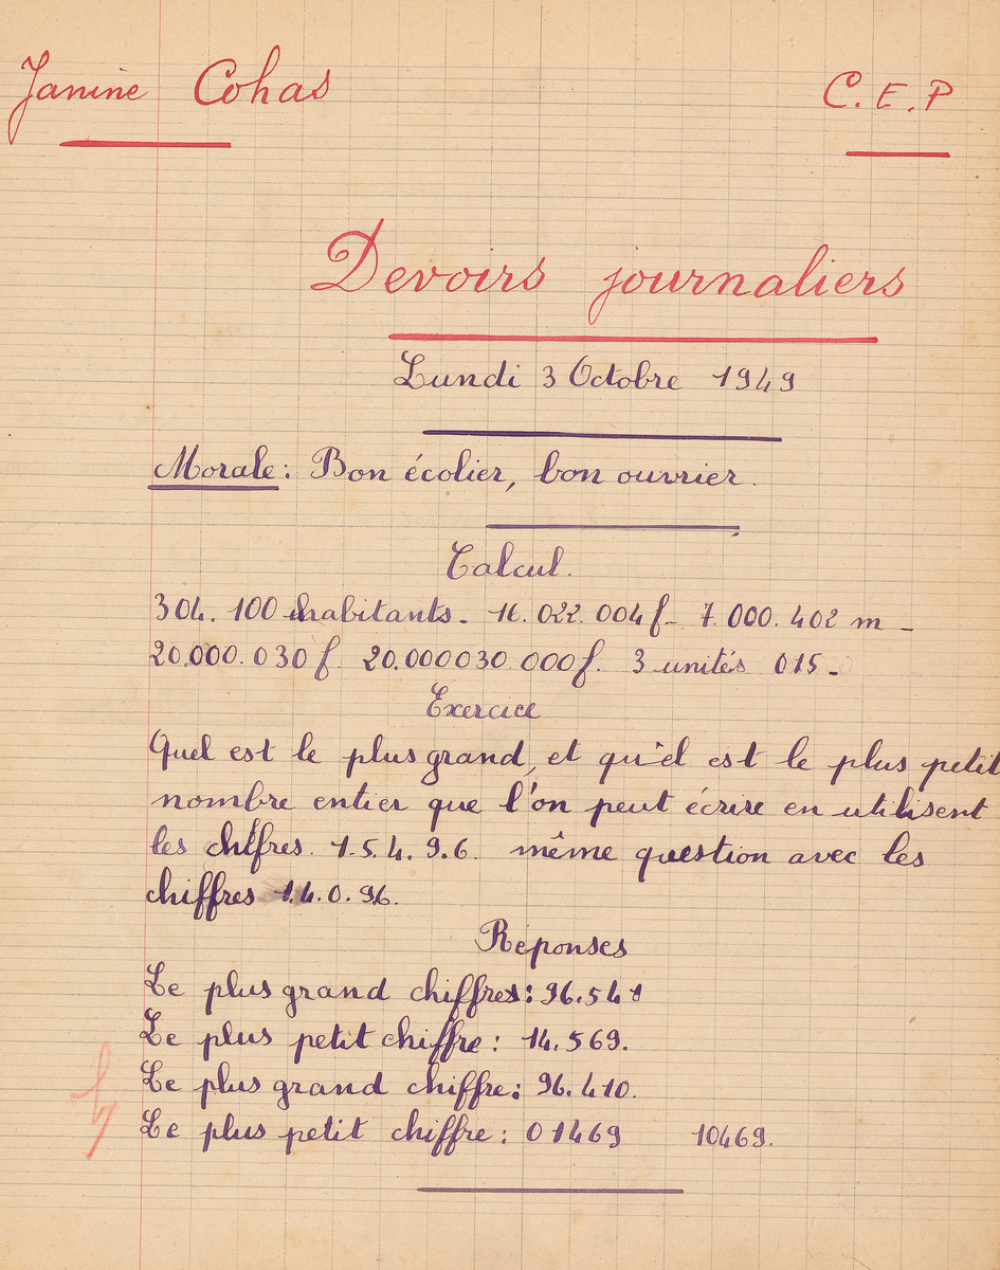 Janine Cohas C.E.P
Devoirs journaliers
Lundi 3 Octobre 1949
Morale: Bon écolier, bon ouvrier.
Calcul.
304.100 habitants. 16.022.004 f_ 7.000.402 m _
20.000.030 f. 20.000030.000 f. 3 unités 015_
Exercice
Quel est le plus grand, et qu'el est le plus petit
nombre entier que l'on peut écrire en utilisent
les chiffres. 1.5.4.9.6. même question avec les
chiffres 1.4.0.96.
Réponses
Le plus grand chiffres: 96.541
Le plus petit chiffre: 14.569.
Le plus grand chiffre: 96.410.
Le plus petit chiffre: 01469 10469.